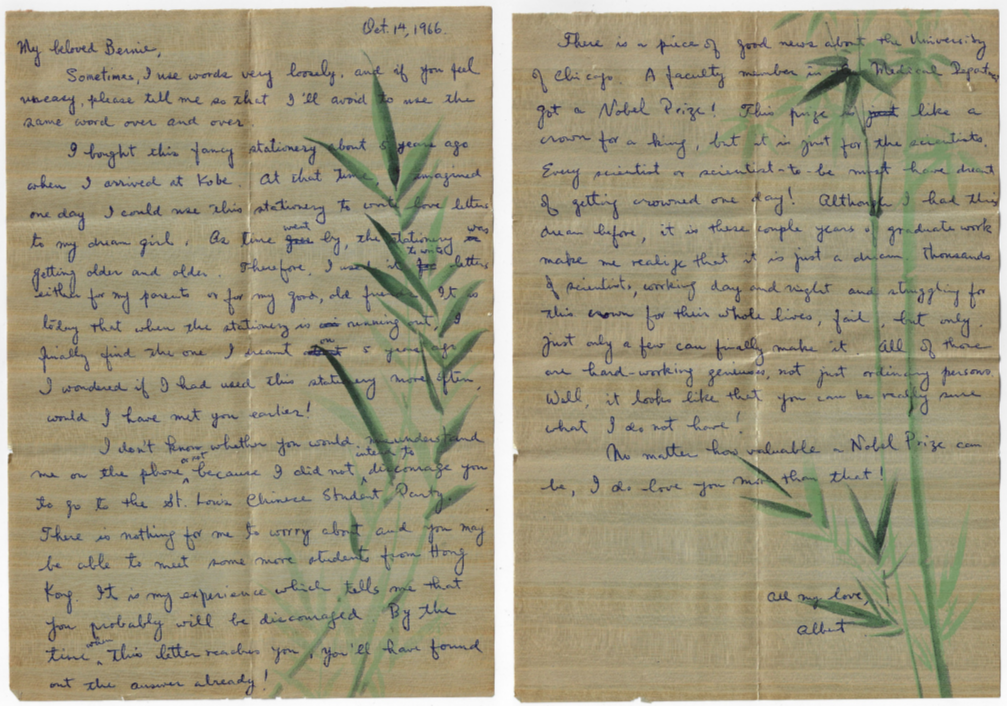 Oct. 14, 1966.
My beloved Bernie,
Sometimes, I use words very loosely, and if you feel
uneasy, please tell me so that I'll avoid to use the
same word over and over.
I bought this fancy stationery about 5 years ago
when I arrived at Kobe. At that time I imagined
one day I could use this stationery to write love letters
to my dream girl. As time went by, the stationery was
getting older and older. Therefore, I used it to write letters
either for my parents or for my good, old friends. It is
today that when the stationery is running out, I
finally find the one I dreamt on 5 years ago.
I wondered if I had used this stationery more often,
would I have met you earlier!
I don't know whether you would misunderstand
me on the phone or not because I did not intend to discourage you
to go to the St. Louis Chinese Student Party.
There is nothing for me to worry about and you may
be able to meet some more students from Hong
Kong. It is my experience which tells me that
you probably will be discouraged. By the
time when this letter reaches you, you'll have found
out the answer already!
There is a piece of good news about the University
of Chicago. A faculty member in Medical Depart.
got a Nobel Prize! This prize is just like a
crown for a king, but it is just for the scientists.
Every scientist or scientist-to-be must have dreamt
of getting crowned one day! Although I had this
dream before, it is these couple years of graduate work
make me realize that it is just a dream. Thousands
of scientists, working day and night and struggling for
this crown for their whole lives, fail, but only
just only a few can finally make it. All of those
are hard-working geniuses, not just ordinary persons.
Well, it looks like that you can be really sure
what I do not have!
No matter how valuable a Nobel Prize can
be, I do love you more than that!
All my love,
Albert